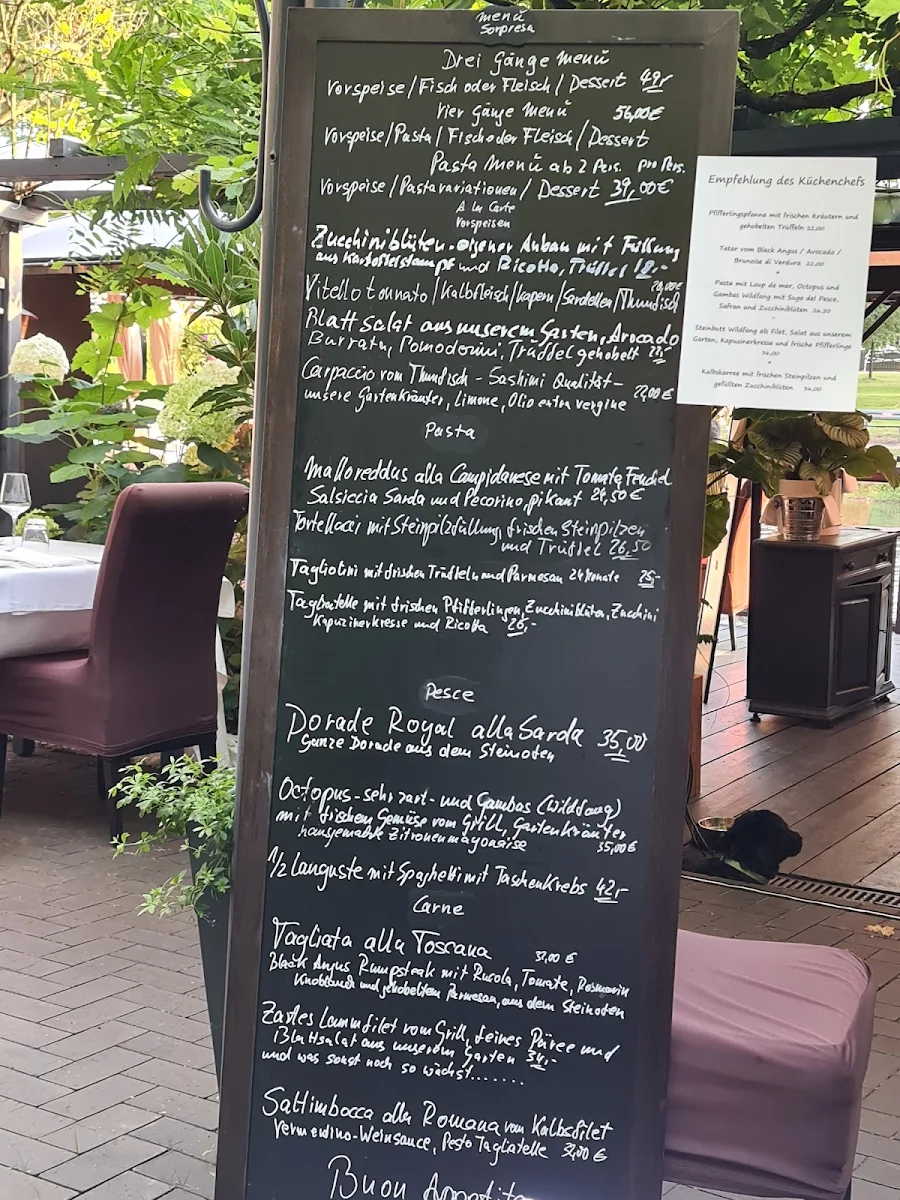 menü
Sorpresa
Drei Gänge menü
Vorspeise/Fisch oder Fleisch/Dessert 49,-
Vier Gänge menü 56,00€
Vorspeise/Pasta/Fisch oder Fleisch/Dessert
Pasta menü ab 2 Pers. pro Pers.
Vorspeise/Pastavariationen/Dessert 39,00€
A la Carte
Vorspeisen
Zucchiniblüten-eigener Anbau mit Füllung
aus Kartoffelstampf und Ricotta, Trüffel 18,-
Vitello tonnato/Kalbfleisch/kapern/Sardellen/Thunfisch 20,00€
Blattsalat aus unserem Garten, Avocado
Burrata, Pomodorini, Trüffel gehobelt 22,-
Carpaccio vom Thunfisch - Sashimi Qualität-
unsere Gartenkräuter, Limone, Olio extra vergine 22,00€
Pasta
Malloreddus alla Campidanese mit Tomate, Fenchel
Salsiccia Sarda und Pecorino, pikant 24,50€
Tortellacci mit Steinpilzfüllung, frischen Steinpilzen
und Trüffel 26,50
Tagliolini mit frischen Trüffeln und Parmesan 24 Monate 25,-
Tagliatelle mit frischen Pfifferlingen, Zucchiniblüten, Zucchini
Kapuzinerkresse und Ricotta 25,-
Pesce
Dorade Royal alla Sarda 35,00
Ganze Dorade aus dem Steinofen
Octopus-sehr zart- und Gambas (Wildfang)
mit frischem Gemüse vom Grill, Gartenkräuter
hausgemachte Zitronenmayonaise 35,00€
1/2 Languste mit Spaghetti mit Taschenkrebs 42,-
Carne
Tagliata alla Toscana 32,00 €
Black Angus Rumpsteak mit Rucola, Tomate, Rosmarin
Knoblauch und gehobeltem Parmesan, aus dem Steinofen
Zartes Lammfilet vom Grill, feines Püree und
Blattsalat aus unserem Garten 34,-
und was sonst noch so wächst.......
Saltimbocca alla Romana vom Kalbsfilet
Vermentino-Weinsauce, Pesto Tagliatelle 32,00 €
Buon Appetito
Empfehlung des Küchenchefs
Pfifferlingspfanne mit frischen Kräutern und
gehobelten Trüffeln 22,00
Tatar vom Black Angus / Avocado /
Brunoise di Verdura 22,00
*
Pasta mit Loup de mer, Octopus und
Gambas Wildfang mit Sugo del Pesce,
Safran und Zucchiniblüten 26,50
*
Steinbutt Wildfang als Filet, Salat aus unserem
Garten, Kapuzinerkresse und frische Pfifferlinge
36,00
*
Kalbskarree mit frischen Steinpilzen und
gefüllten Zucchiniblüten 36,00